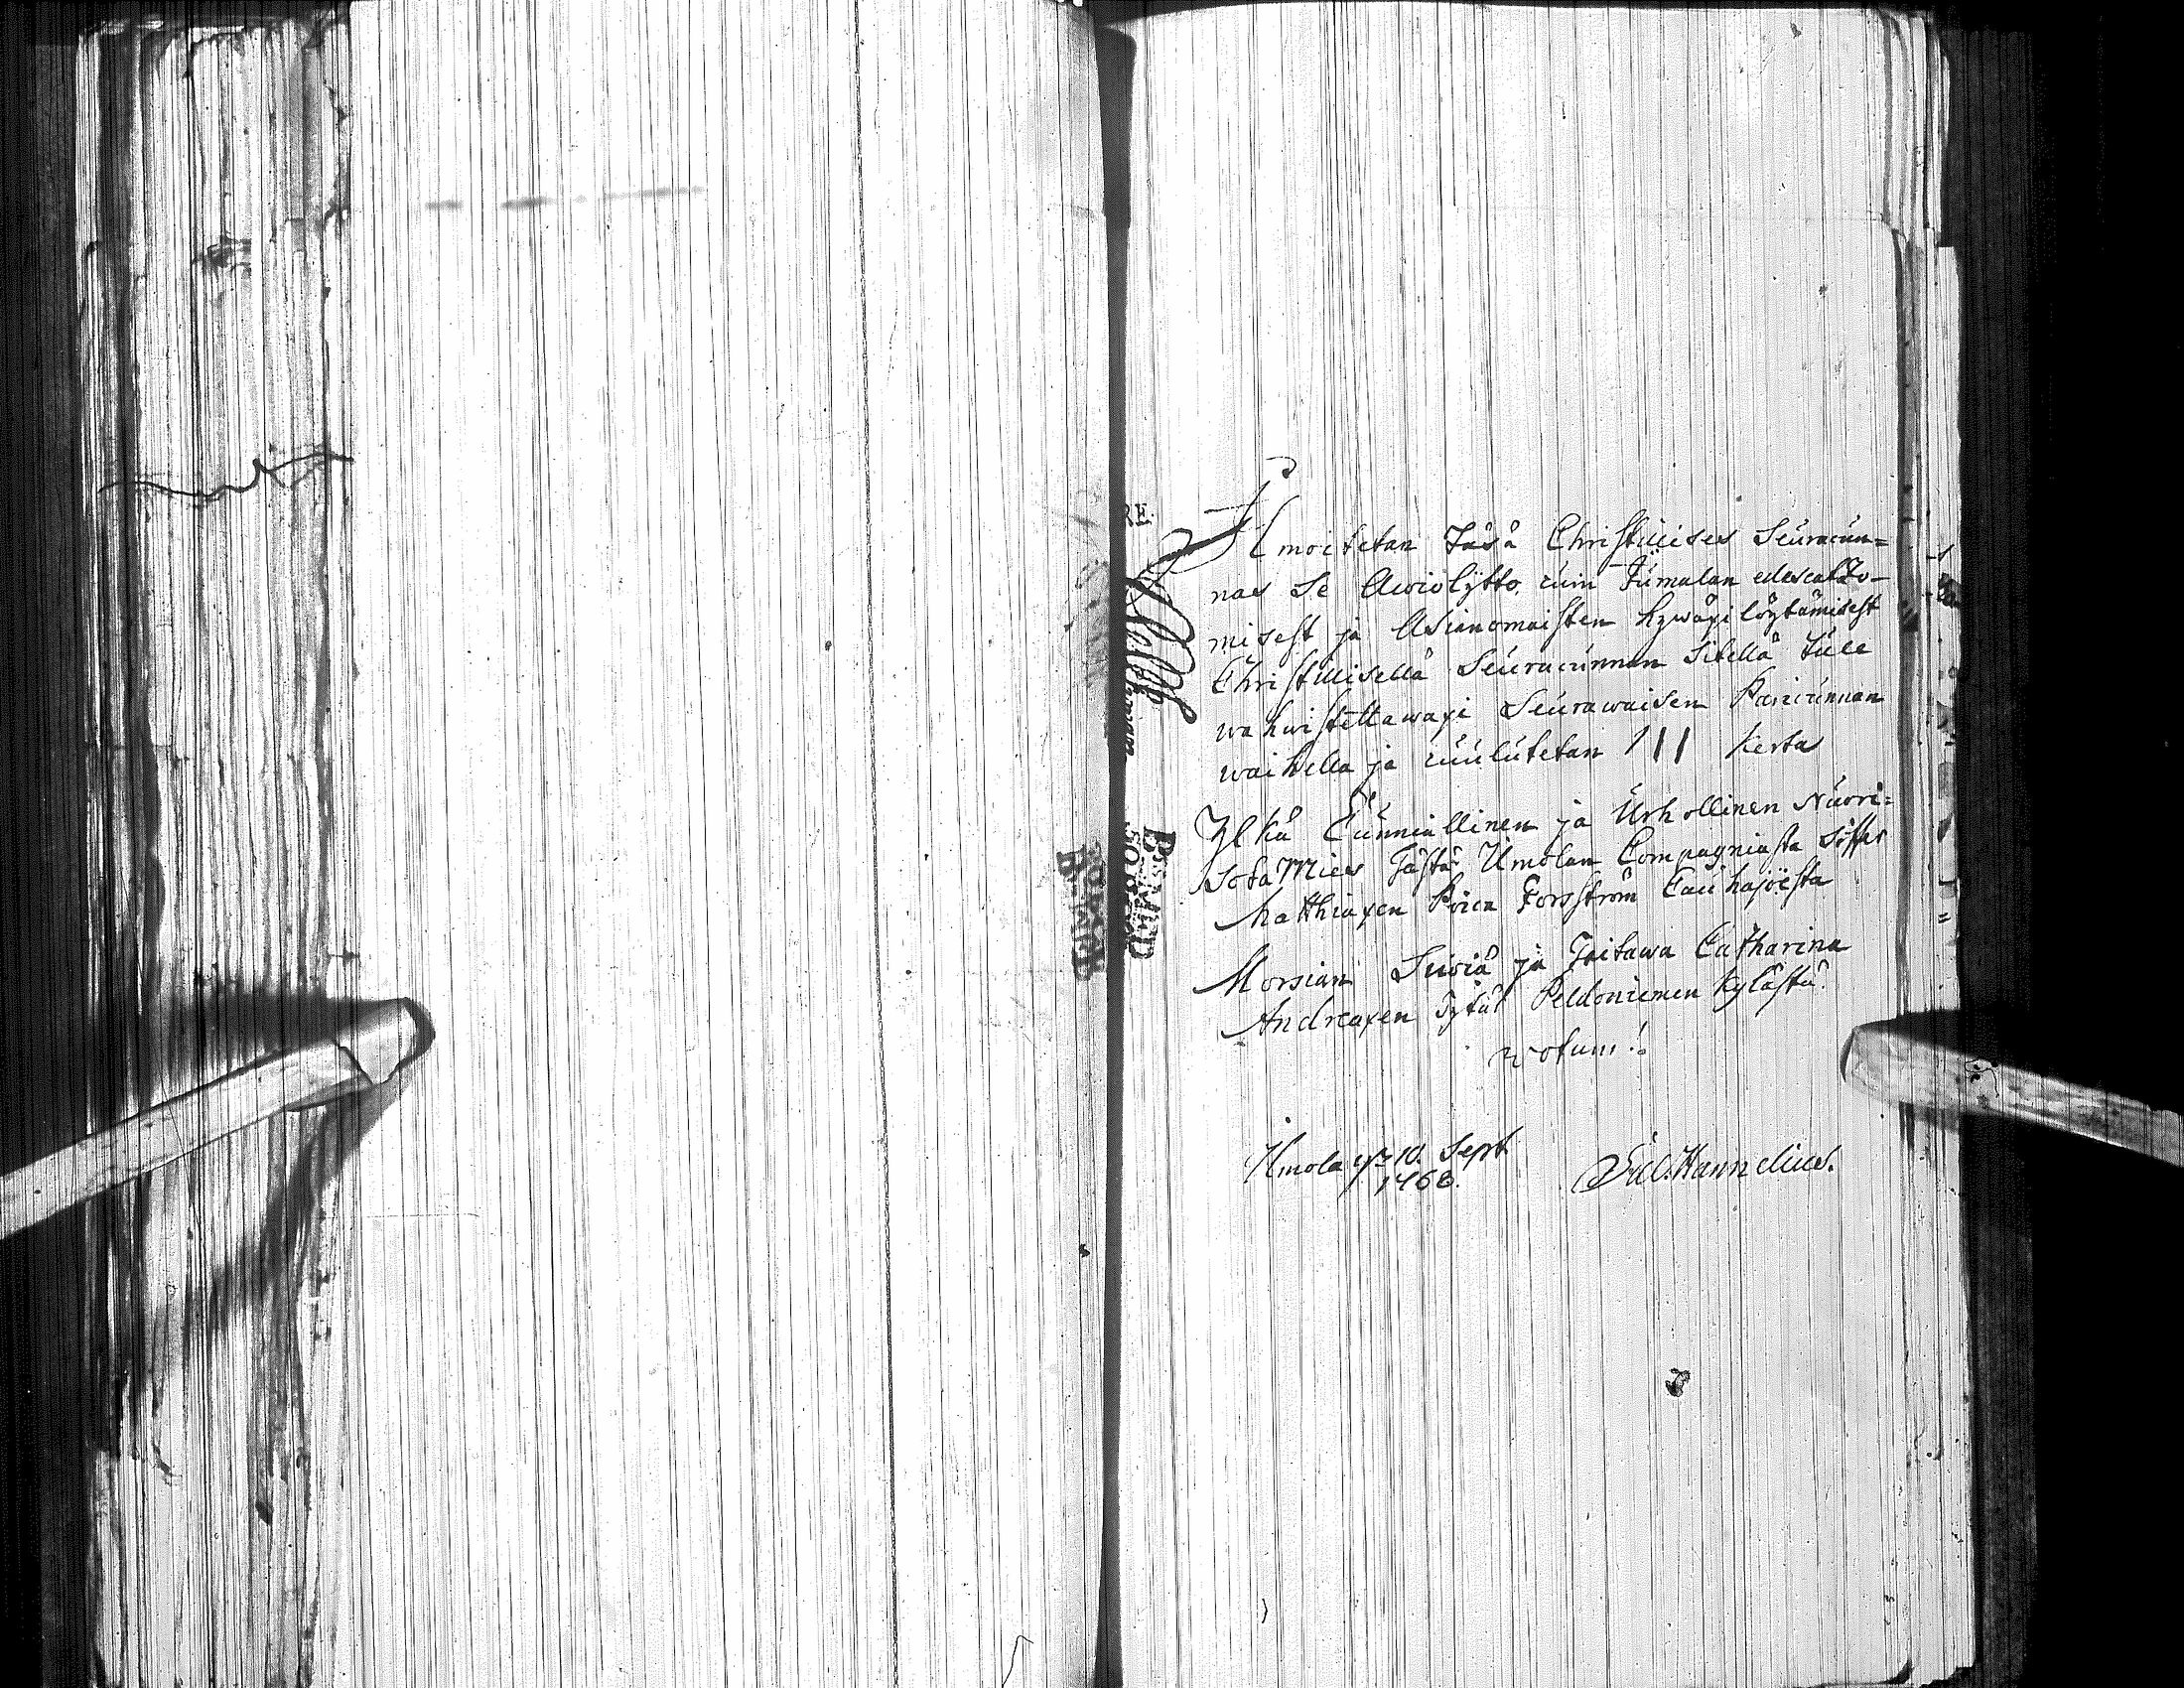 Ilmoitetan Täsä Christilises Seuracun=
nas Se Awiolijtto, cuin Jumalan edescatzo-
misest ja Asianomaisten hywäxi löytämisest
Christillisellä Seuracunnan Sitellä tule
wahwistettawaxi Seurawaisen Paricunnan
waihella ja cuulutetan III Kerta
Ylkä Cunniallinen ja Urhollinen Nuori=
sota Mies Tästä Ilmolan Compagniasta
Matthiaxen Poica Forsström Cauhajoesta
Morsian Siwiä ja Taitawa Catharina
Andreaxen Tytär Peldoniemen Kylästä.
votum!
Ilmola 10. Sept
1768.
Hannelius.